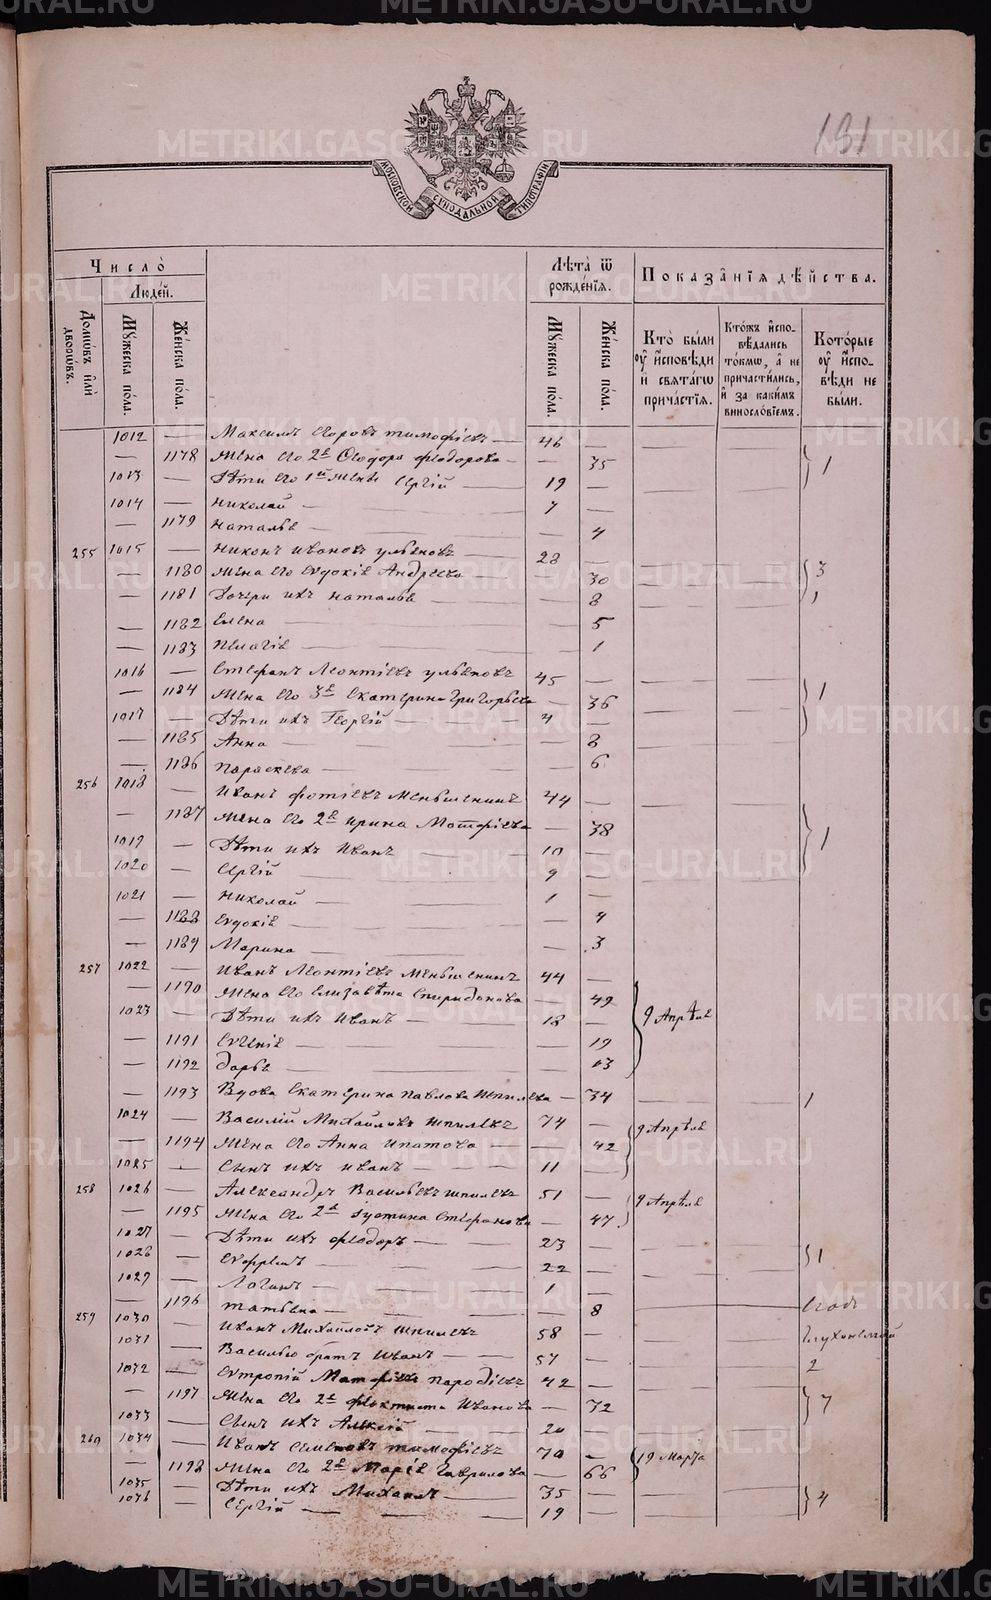 131
МОСКОВСКОЙ СѴНОДАЛЬНОЙ ТИПОГРАФІИ
Число̀
Люде́й.
Домѡ́въ и҆лѝ дворѡ́въ.
Мꙋ́жеска по́ла.
Же́нска по́ла.
Лѣ́та ѿ рожде́нїѧ.
Мꙋ́жеска по́ла.
Же́нска по́ла.
Показа̑нїѧ дѣ́йства.
Кто̀ бы́ли ᲂу҆ и҆сповѣ́ди и҆ свѧта́гѡ прича́стїѧ.
Кто́жъ и҆сповѣ́дались то́кмѡ, а҆ не причасти́лись, и҆ за каки́мъ виносло́вїемъ.
Кото́рые ᲂу҆ и҆спо- вѣ́ди не бы́ли.
1012 — Максимъ Егоровъ Тимофѣевъ — 46 —
— 1178 Жена его 2я Ѳеодора Ѳеодорова — — 35 1
1013 — Дѣти его 1й жены Сергій — 19 —
1014 — Николай — 7 —
— 1179 Наталья — — 4
255 1015 — Никонъ Ивановъ Ульяновъ — 28 —
— 1180 Жена его Евдокія Андреева — — 30 3
— 1181 Дочери ихъ Наталья — — 8 1
— 1182 Елена — — 5
— 1183 Пелагія — — 1
1016 — Стефанъ Леонтіевъ Ульяновъ 45 —
— 1184 Жена его 3я Екатерина Григорьева — 36 1
1017 — Дѣти ихъ Георгій — 4 —
— 1185 Анна — — 8
— 1186 Параскева — — 6
256 1018 — Иванъ Фотіевъ Меньшенинъ 44 —
— 1187 Жена его 2я Ирина Матфіева — 38 1
1019 — Дѣти ихъ Иванъ — 10 —
1020 — Сергій — 9 —
1021 — Николай — 1 —
— 1188 Евдокія — — 4
— 1189 Марина — — 3
257 1022 — Иванъ Леонтіевъ Меньшенинъ 44 —
— 1190 Жена его Елизавѣта Спиридонова — 42
1023 — Дѣти ихъ Иванъ — 18 — 9 Апрѣля
— 1191 Евгенія — — 19
— 1192 Дарья — — 13
— 1193 Вдова Екатерина Павлова Шпилева — 34 1
1024 — Василій Михайловъ Шпилевъ 74 — 9 Апрѣля
— 1194 Жена его Анна Ипатова — — 42
1025 — Сынъ ихъ Иванъ — 11 —
258 1026 — Александръ Васильевъ Шпилевъ 51 — 9 Апрѣля
— 1195 Жена его 2я Іустина Стефанова — 47
1027 — Дѣти ихъ Ѳеодоръ — 23 —
1028 — Ефремъ — 22 — 1
1029 — Логинъ — 1 —
— 1196 Татьяна — — 8
259 1030 — Иванъ Михайловъ Шпилевъ 58 — глухонемой
1031 — Василью братъ Иванъ — 57 — 2
1032 — Евтропій Матфіевъ 42 —
— 1197 Жена его 2я Ѳеоктиста Иванова — 32 7
1033 — Сынъ ихъ Алексій — 20 —
260 1034 — Иванъ Семеновъ Тимофѣевъ 70 — 19 Марта
— 1198 Жена его 2я Марія Гаврилова — 66
1035 — Дѣти ихъ Михаилъ — 35 — 4
1036 — Сергій — 19 —
METRIKI.GASO-URAL.RU